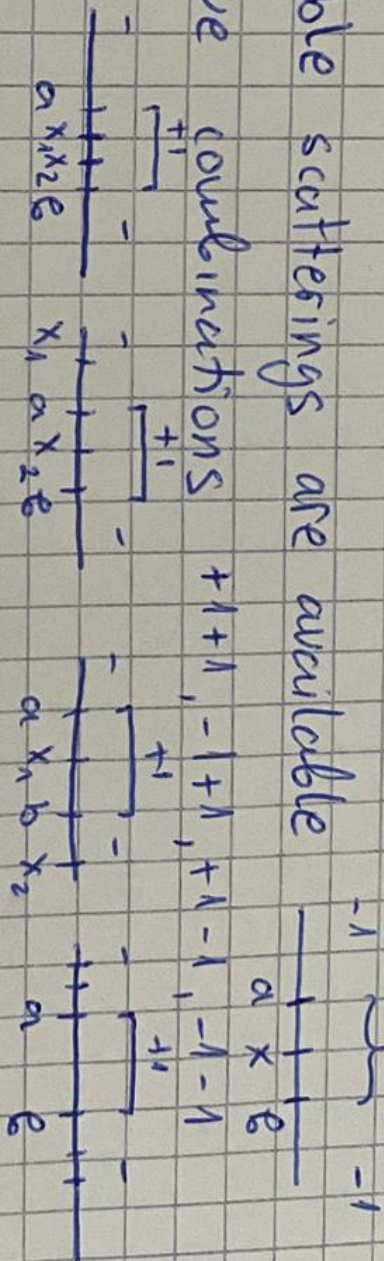 ble scatterings are available
-1 -1
a x b
ve combinations +1+1, -1+1, +1-1, -1-1
+1 +1 +1 +1
- - - - - - - -
a x₁ x₂ b x₁ a x₂ b a x₁ b x₂ a b